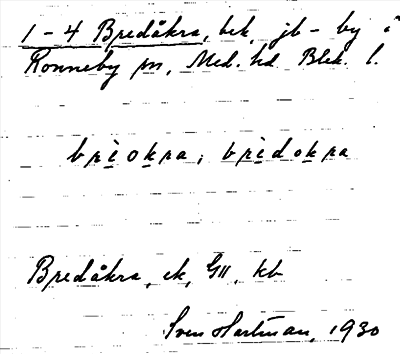 1-4 Bredåkra, bek, jb-by i
Ronneby sn, Med. hd Blek. l.
brèokra; brèdokra
Bredåkra, ek, GII, kb
Sven Hartman, 1930